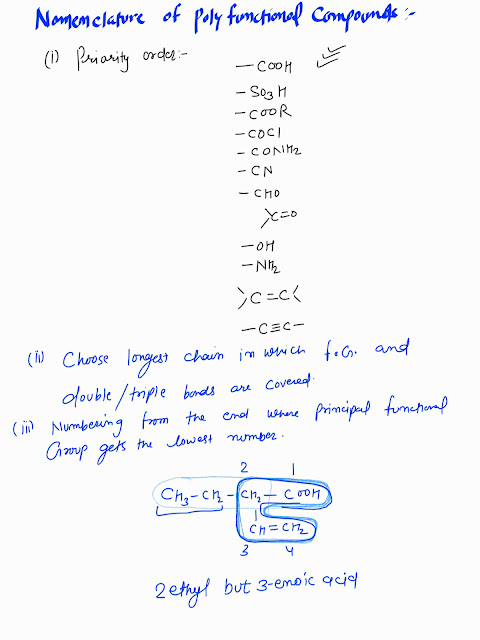 Nomenclature of Polyfunctional Compounds:-
(i) Priority order:-
-COOH
-SO3H
-COOR
-COCl
-CONH2
-CN
-CHO
>C=O
-OH
-NH2
>C=C<
-C≡C-
(ii) Choose longest chain in which f.G. and
double/triple bonds are covered.
(iii) Numbering from the end where principal functional
Group gets the lowest number.
2 1
CH3-CH2-CH2-COOH
CH=CH2
3 4
2 ethyl but 3-enoic acid